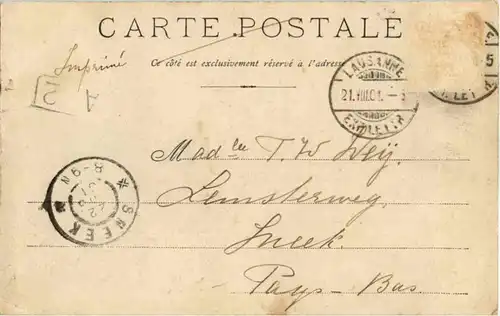 CARTE POSTALE
Ce côté est exclusivement réservé à l'adresse
Imprimé
A
LAUSANNE
21.VIII.01.
EXP. LETTR.
5
LET
Mad lle T. W. Weÿ.
Lemsterweg,
Sneek.
Pays-Bas
SNEEK
8-9N